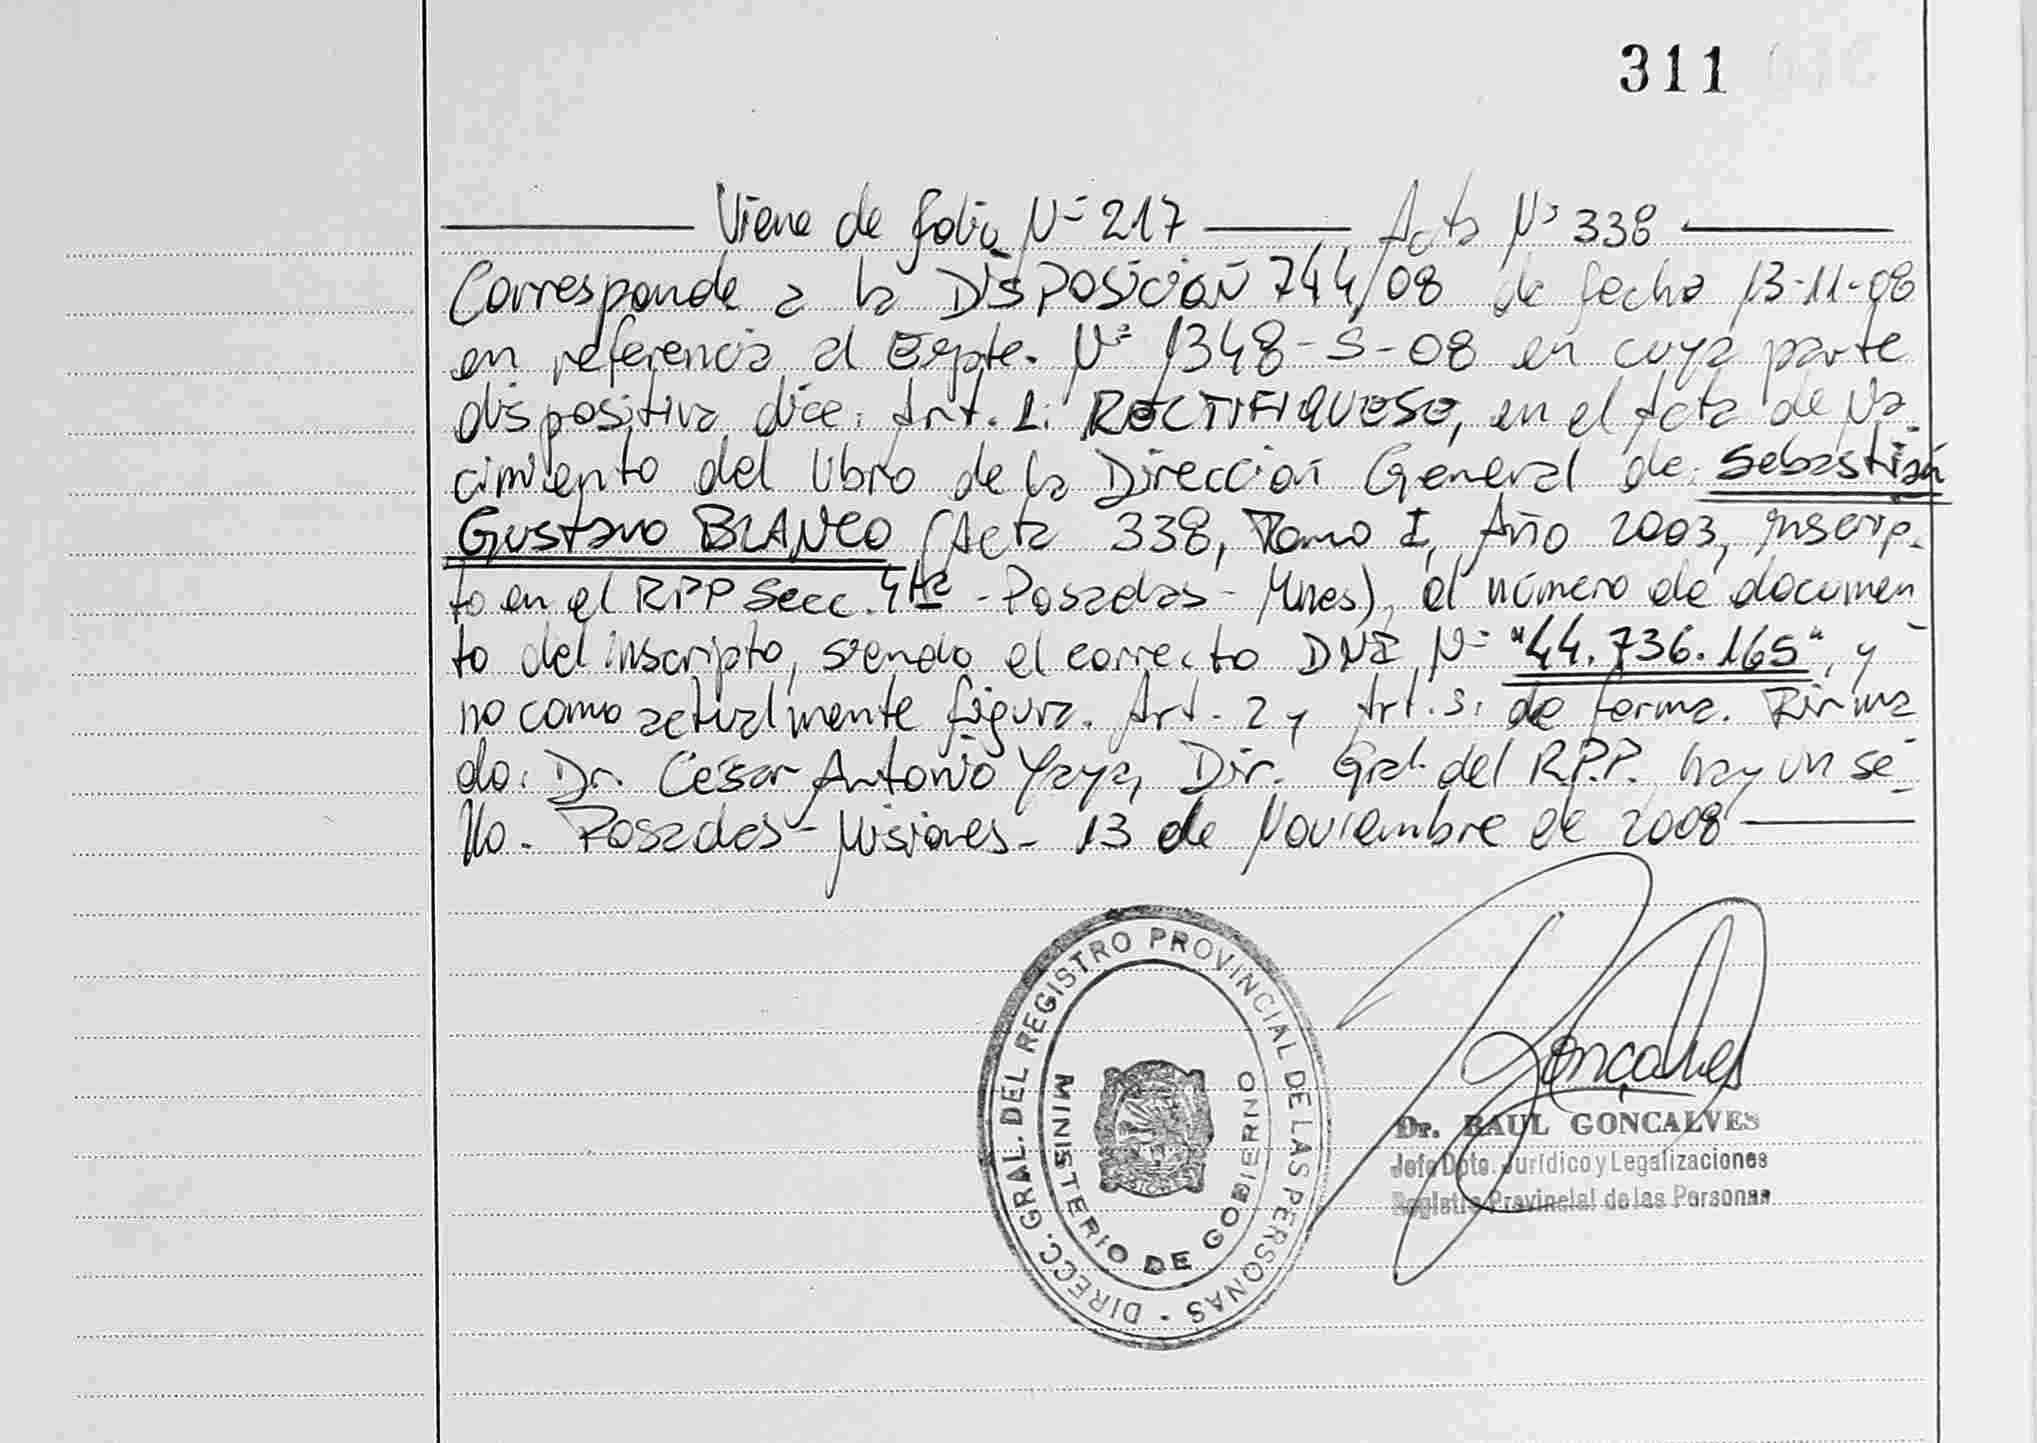 311
Viene de folio Nº 217 Acta Nº 338
Corresponde a la DISPOSICIÓN 744/08 de fecha 13-11-08
en referencia al Expte. Nº 1348-S-08 en cuya parte
dispositiva dice: Art. 1: RECTIFIQUESE, en el Acta de Na
cimiento del libro de la Dirección General de: Sebastián
Gustavo BLANCO (Acta 338, Tomo I, Año 2003, inscrip-
to en el RPP Secc. 4ta - Posadas - Mnes), el número de documen
to del inscripto, siendo el correcto DNI Nº "44.736.165", y
no como actualmente figura. Art. 2 y Art. 3: de forma. Firma
do: Dr. César Antonio Yaya, Dir. Gral. del R.P.P. hay un se-
llo. Posadas - Misiones - 13 de Noviembre de 2008
DIRECC. GRAL. DEL REGISTRO PROVINCIAL DE LAS PERSONAS -
MINISTERIO DE GOBIERNO
Gonçalves
Dr. RAUL GONCALVES
Jefe Dpto. Jurídico y Legalizaciones
Registro Provincial de las Personas